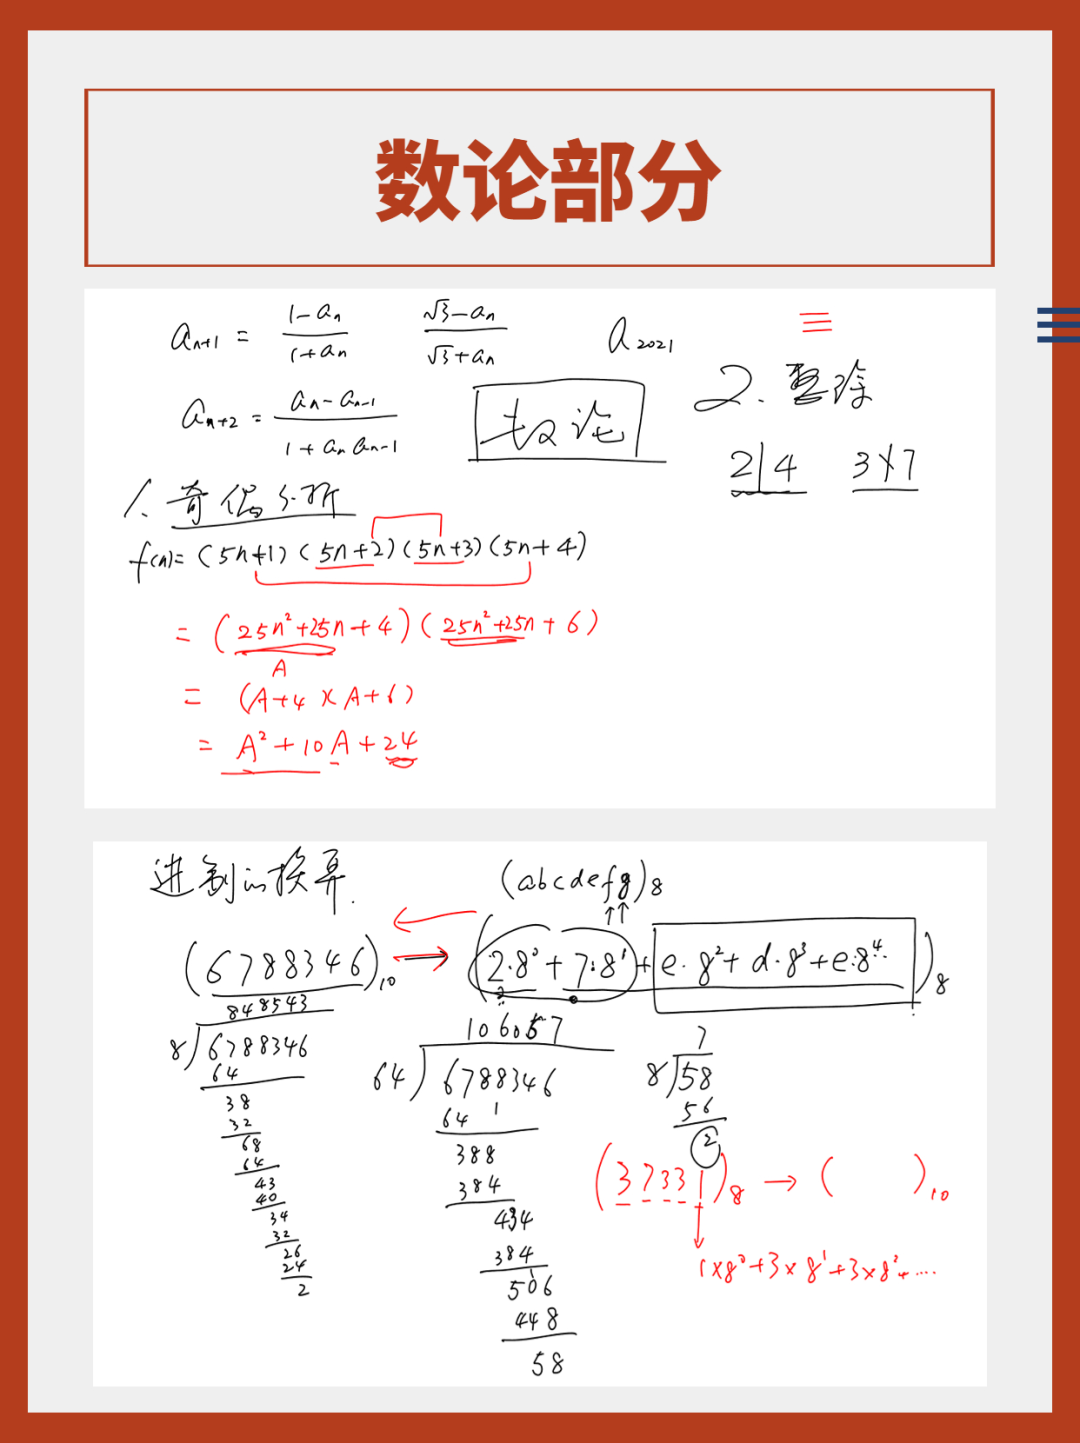 数论部分
aₙ₊₁ = (1-aₙ)/(1+aₙ)   (√3-aₙ)/(√3+aₙ)   a₂₀₂₁   三
aₙ₊₂ = (aₙ-aₙ₋₁)/(1+aₙaₙ₋₁)   数论   2. 整除
2|4   3∤7
1. 奇偶分析
f(n)=(5n+1)(5n+2)(5n+3)(5n+4)
= (25n²+25n+4)(25n²+25n+6)
A
= (A+4)(A+6)
= A²+10A+24
进制的换算.   (abcdefg)₈
(6788346)₁₀ → (2·8⁰+7·8¹+e·8²+d·8³+e·8⁴··)₈
848543
8)6788346
64
38
32
68
64
43
40
34
32
26
24
2
106057
64)6788346
64 1
388
384
434
384
506
448
58
7
8)58
56
2
(37331)₈ → (   )₁₀
1×8⁰+3×8¹+3×8²+····